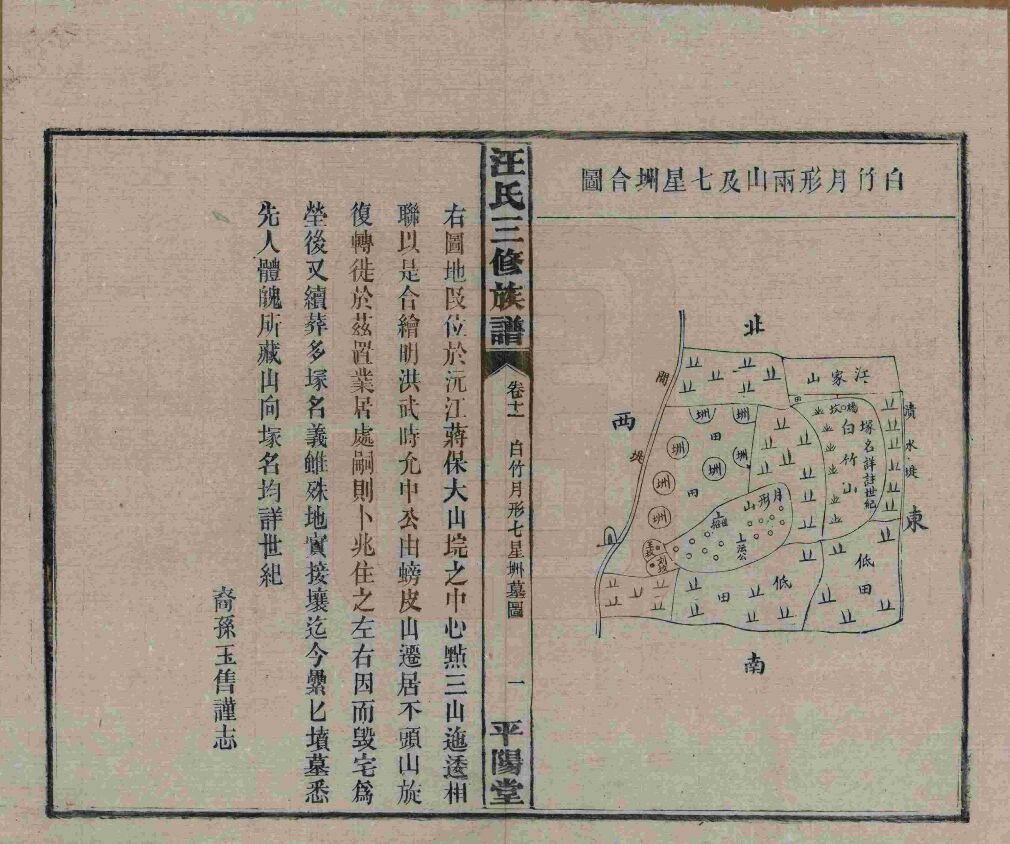 白竹月形兩山及七星圳合圖
北
江家山
間
西
堤
圳
圳
田
圳
圳
圳
圳
田
圳
月形山
白竹山
塚名詳註世紀
資水堤
東
低田
低田
南
汪氏三修族譜
卷十一
白竹月形七星圳墓圖
一
平陽堂
右圖地段位於沅江蔣保大山垸之中心點三山迤逶相
聯以是合繪明洪武時允中公由螃皮山遷居不頭山旋
復轉徙於茲置業居處嗣則卜兆住之左右因而毁宅爲
塋後又續葬多塚名義雖殊地實接壤迄今纍匕墳墓悉
先人體魄所藏山向塚名均詳世紀
裔孫玉售謹志